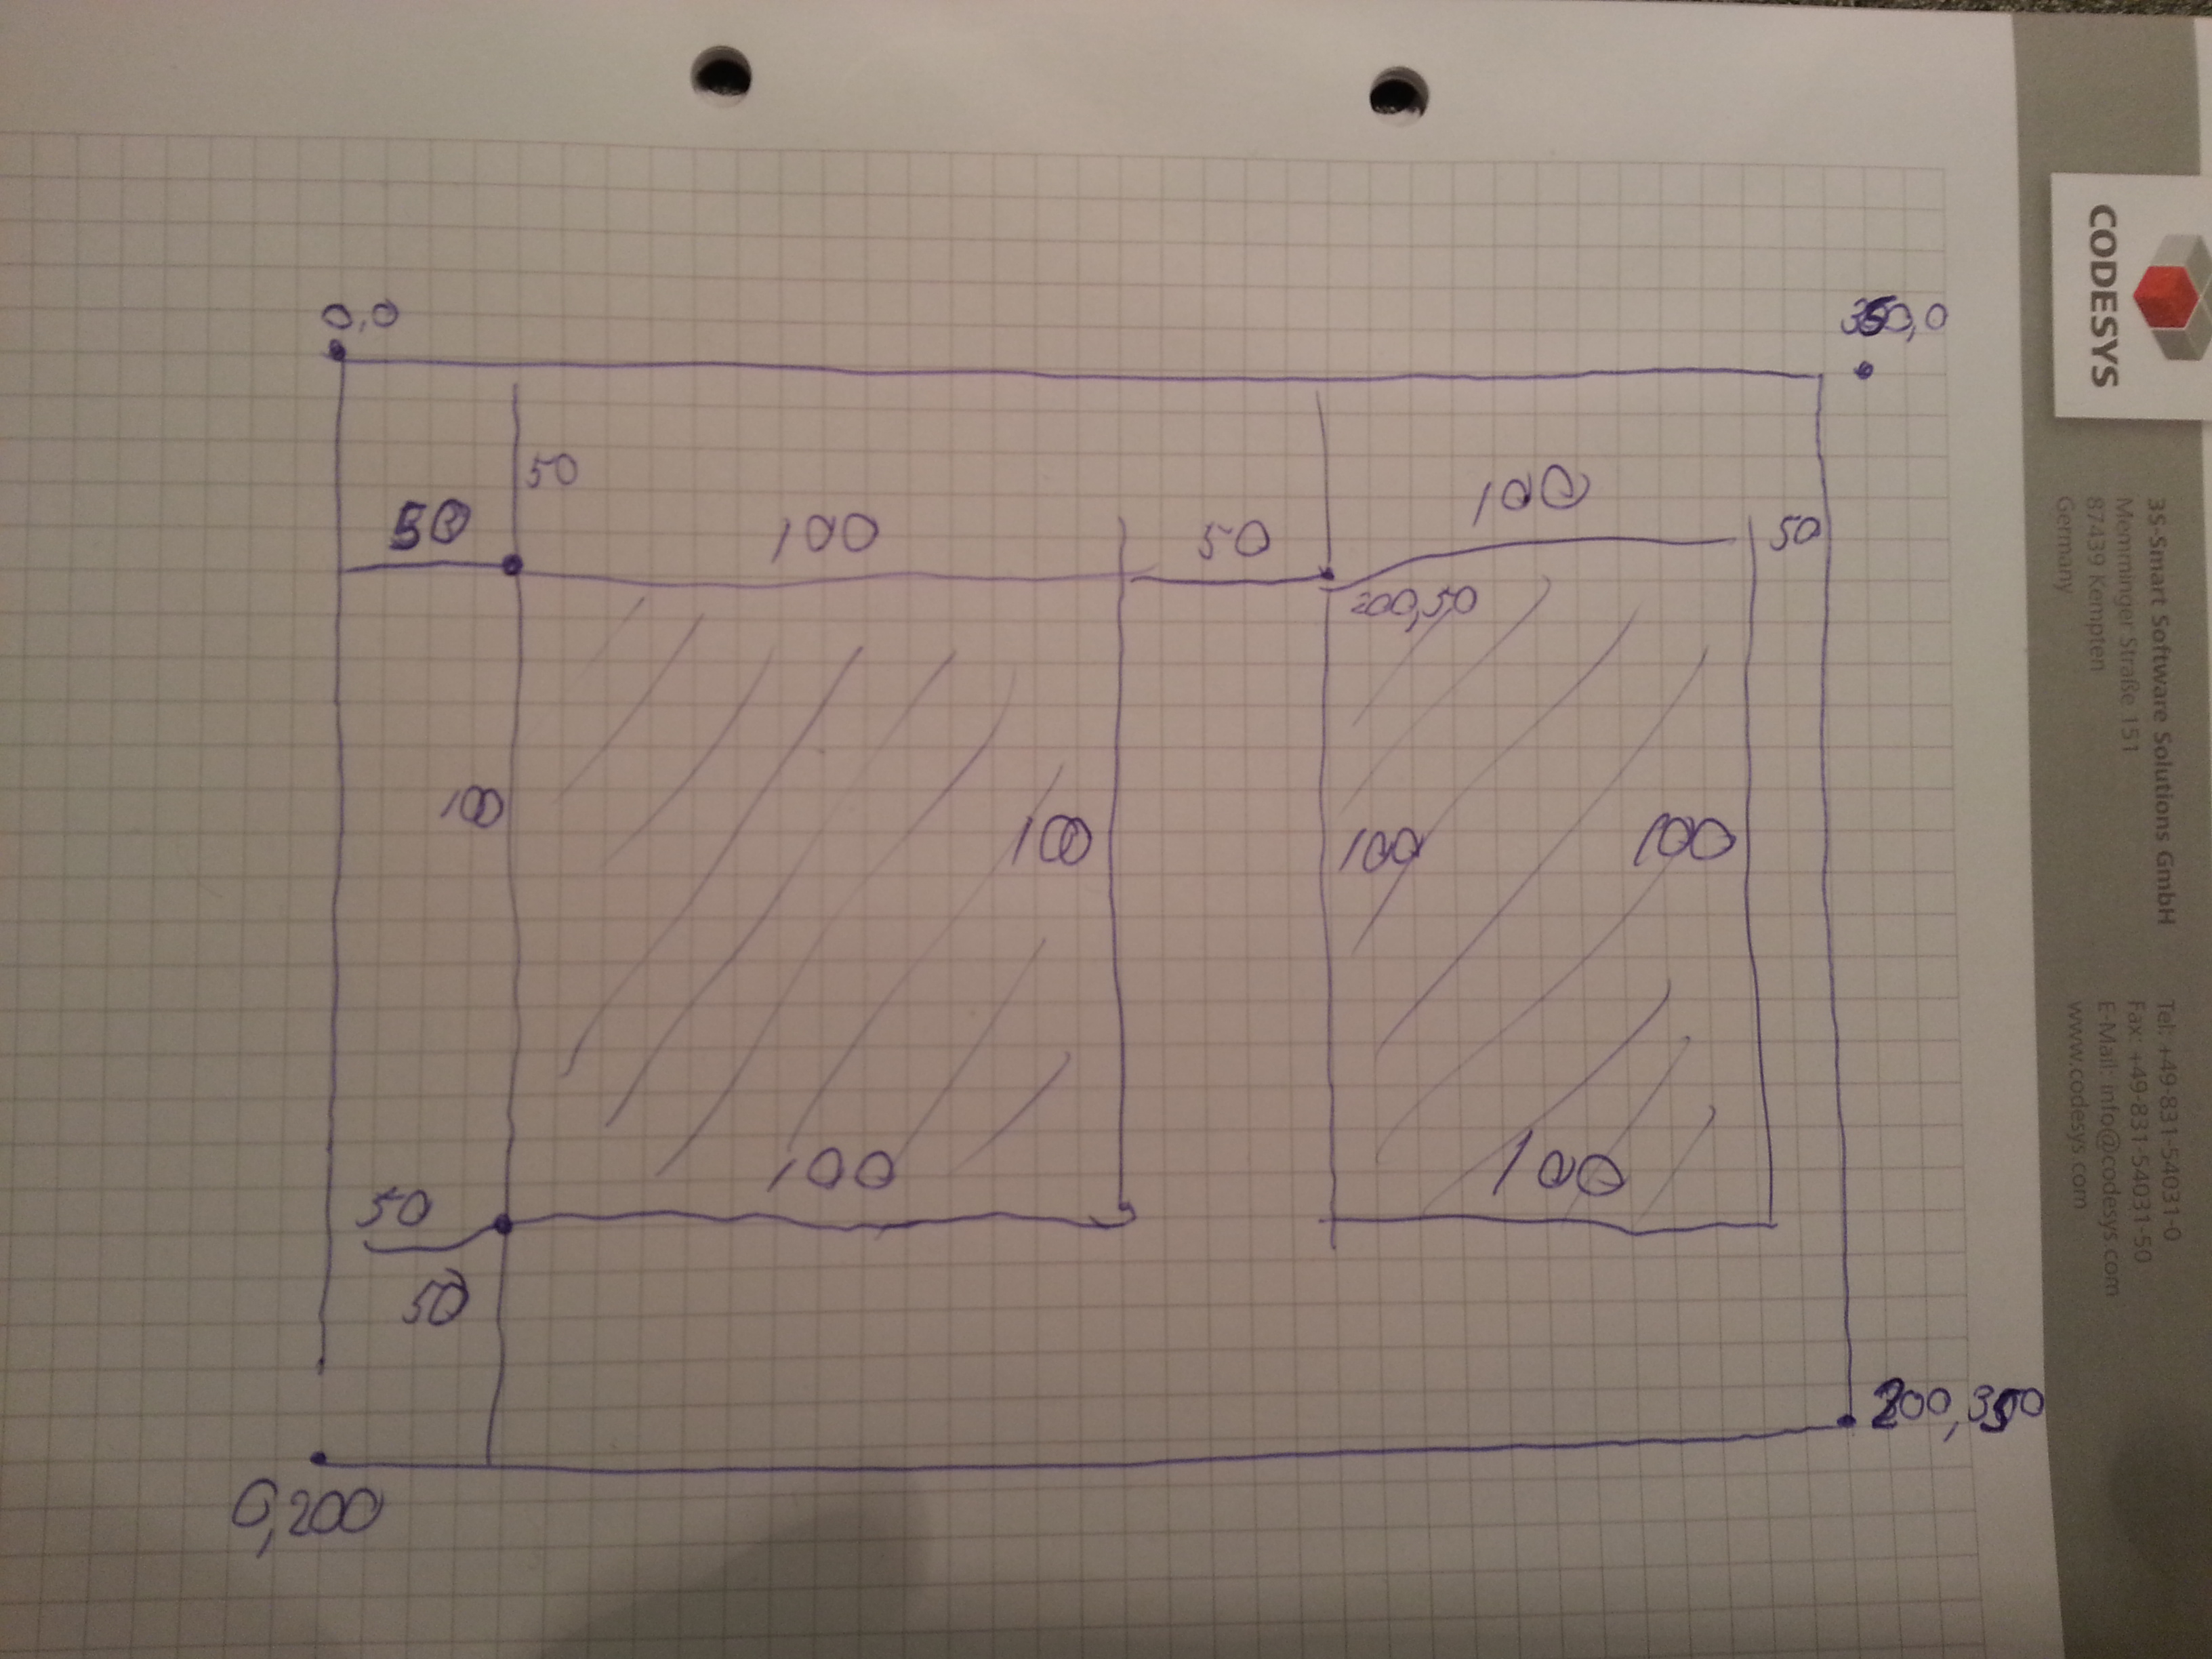 0,0
350,0
50
50
100
50
100
50
200,50
100
100
100
100
50
100
100
50
200,350
0,200
CODESYS
3S-Smart Software Solutions GmbH
Memminger Straße 151
87439 Kempten
Germany
Tel: +49-831-54031-0
Fax: +49-831-54031-50
E-Mail: info@codesys.com
www.codesys.com